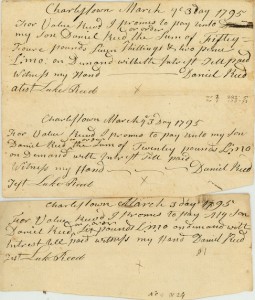 Charlstown March ye 3 Day 1795
For Value Recd I promes to pay unto
my Son Daniel Reed or order the Sum of Fiftey
Foure pounds Seven Shillings & two pence
L:mo. on Demand with Intrest till paid
Witness my Hand Daniel Reed
atest Luke Reed
Charlstown March ye 3 Day 1795
For Value Recd I promes to pay unto my Son
Daniel Reed or order the Sum of Twenley pounds L:mo
on Demand with Intrest till paid
Witness my Hand Daniel Reed
Test Luke Reed
Charlstown March 3 day 1795
For Value Recd I promes to pay My Son
Daniel Reed or order Six pounds L:mo on demand with
Intrest till paid witness my Hand Daniel Reed
Test Luke Reed